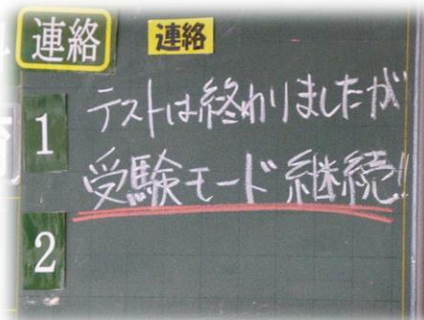 連絡 連絡
1 テストは終わりましたが
受験モード継続!
2